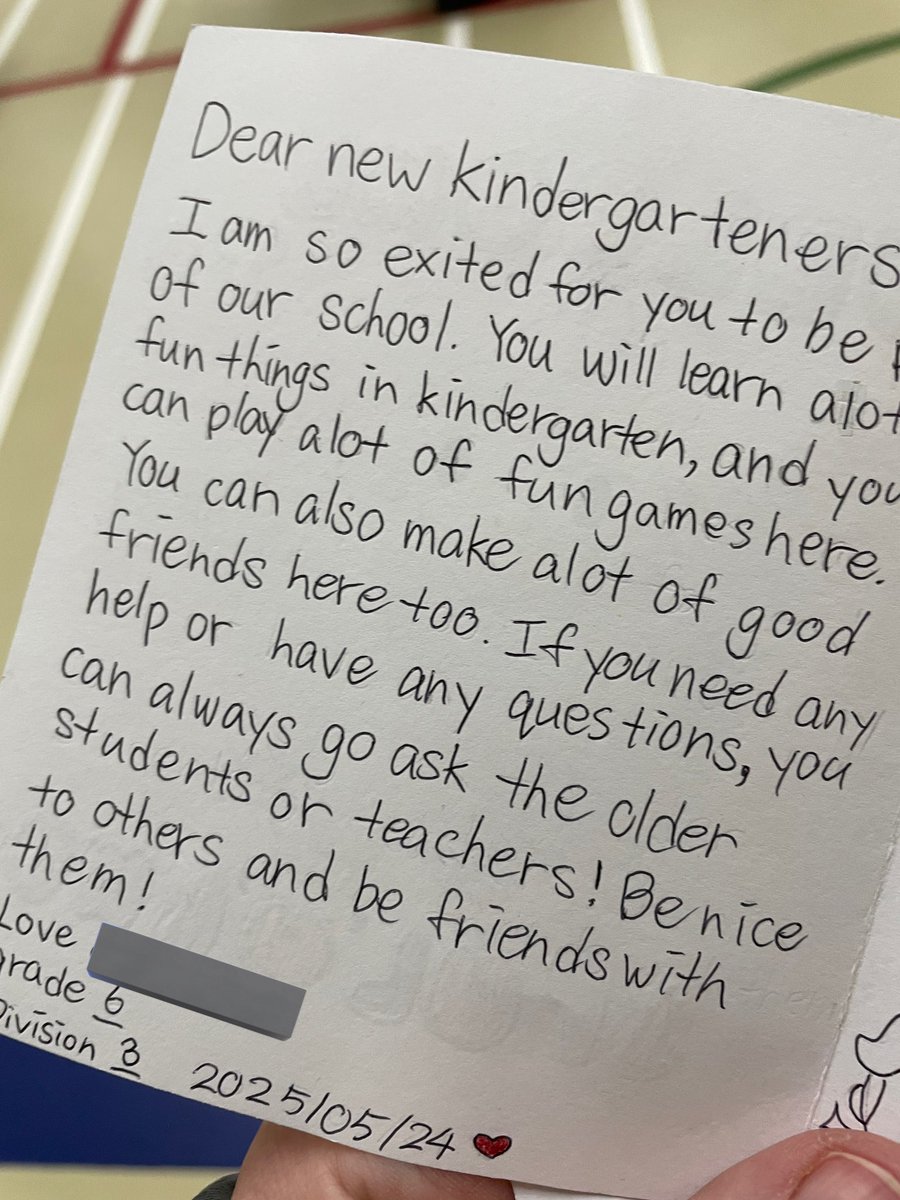 Dear new kindergarteners
I am so exited for you to be
of our school. You will learn alot
fun things in kindergarten, and you
can play alot of fun games here.
You can also make alot of good
friends here too. If you need any
help or have any questions, you
can always go ask the older
students or teachers! Be nice
to others and be friends with
them!
Love
Grade 6
Division 3
2025/05/24